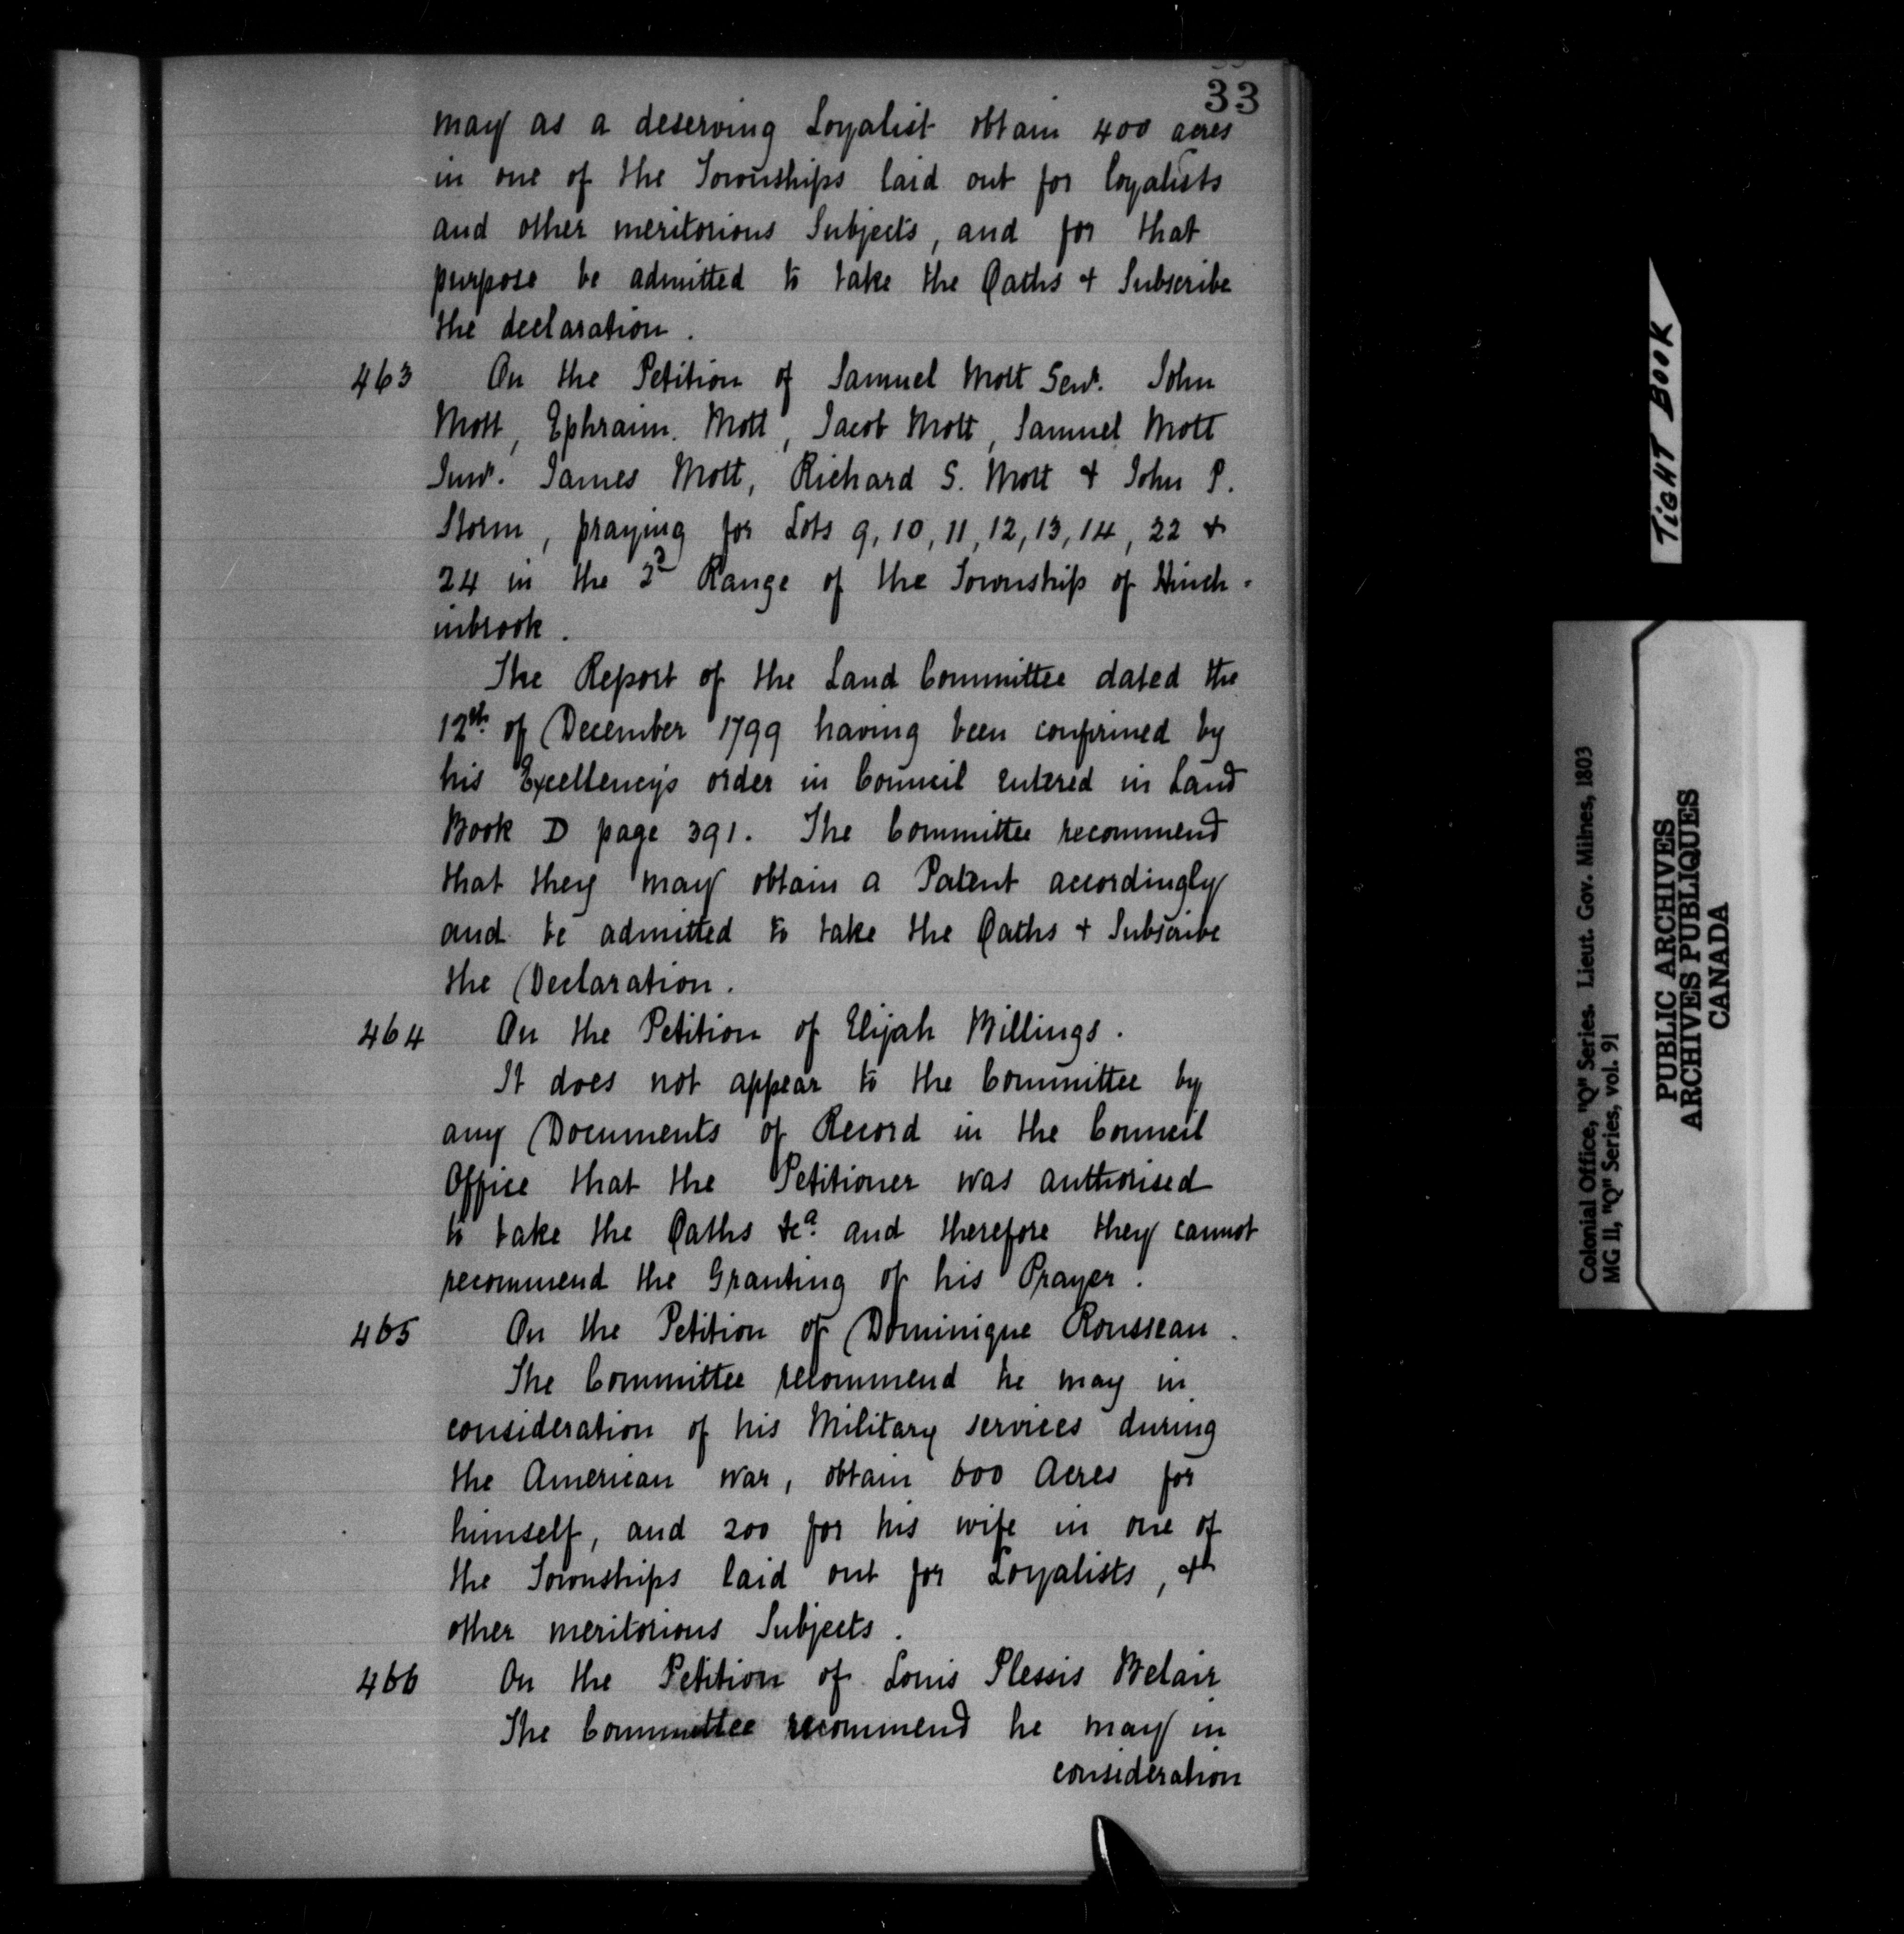 33
may as a deserving Loyalist obtain 400 acres
in one of the Townships laid out for loyalists
and other meritorious Subjects, and for that
purpose be admitted to take the Oaths & Subscribe
the declaration.
463 On the Petition of Samuel Mott Senr. John
Mott, Ephraim. Mott, Jacob Mott, Samuel Mott
Junr. James Mott, Richard S. Mott & John P.
Storm, praying for Lots 9, 10, 11, 12, 13, 14, 22 &
24 in the 2d Range of the Township of Hinch-
inbrook.
The Report of the Land Committee dated the
12th. of December 1799 having been confirmed by
his Excellency's order in Council entered in Land
Book D page 391. The Committee recommend
that they may obtain a Patent accordingly
and be admitted to take the Oaths & Subscribe
the Declaration.
464 On the Petition of Elijah Billings.
It does not appear to the Committee by
any Documents of Record in the Council
Office that the Petitioner was authorised
to take the Oaths &ca. and therefore they cannot
recommend the Granting of his Prayer.
465 On the Petition of Dominique Rousseau.
The Committee recommend he may in
consideration of his Military services during
the American War, obtain 600 Acres for
himself, and 200 for his wife in one of
the Townships laid out for Loyalists, &
other meritorious Subjects.
466 On the Petition of Louis Plessis Belair
The Committee recommend he may in
consideration
TIGHT BOOK
Colonial Office, "Q" Series. Lieut. Gov. Milnes, 1803
MG 11, "Q" Series, vol. 91
PUBLIC ARCHIVES
ARCHIVES PUBLIQUES
CANADA